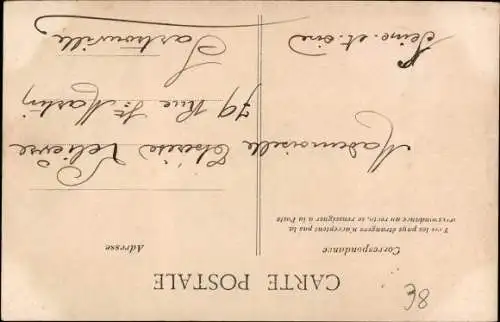 CARTE POSTALE
Correspondance
Tous les pays étrangers n'acceptent pas la
correspondance au recto, se renseigner à la Poste
Adresse
Mademoiselle Thérèse Lelièvre
79 Rue St Martin
Sartrouville
Seine-et-oise
8€